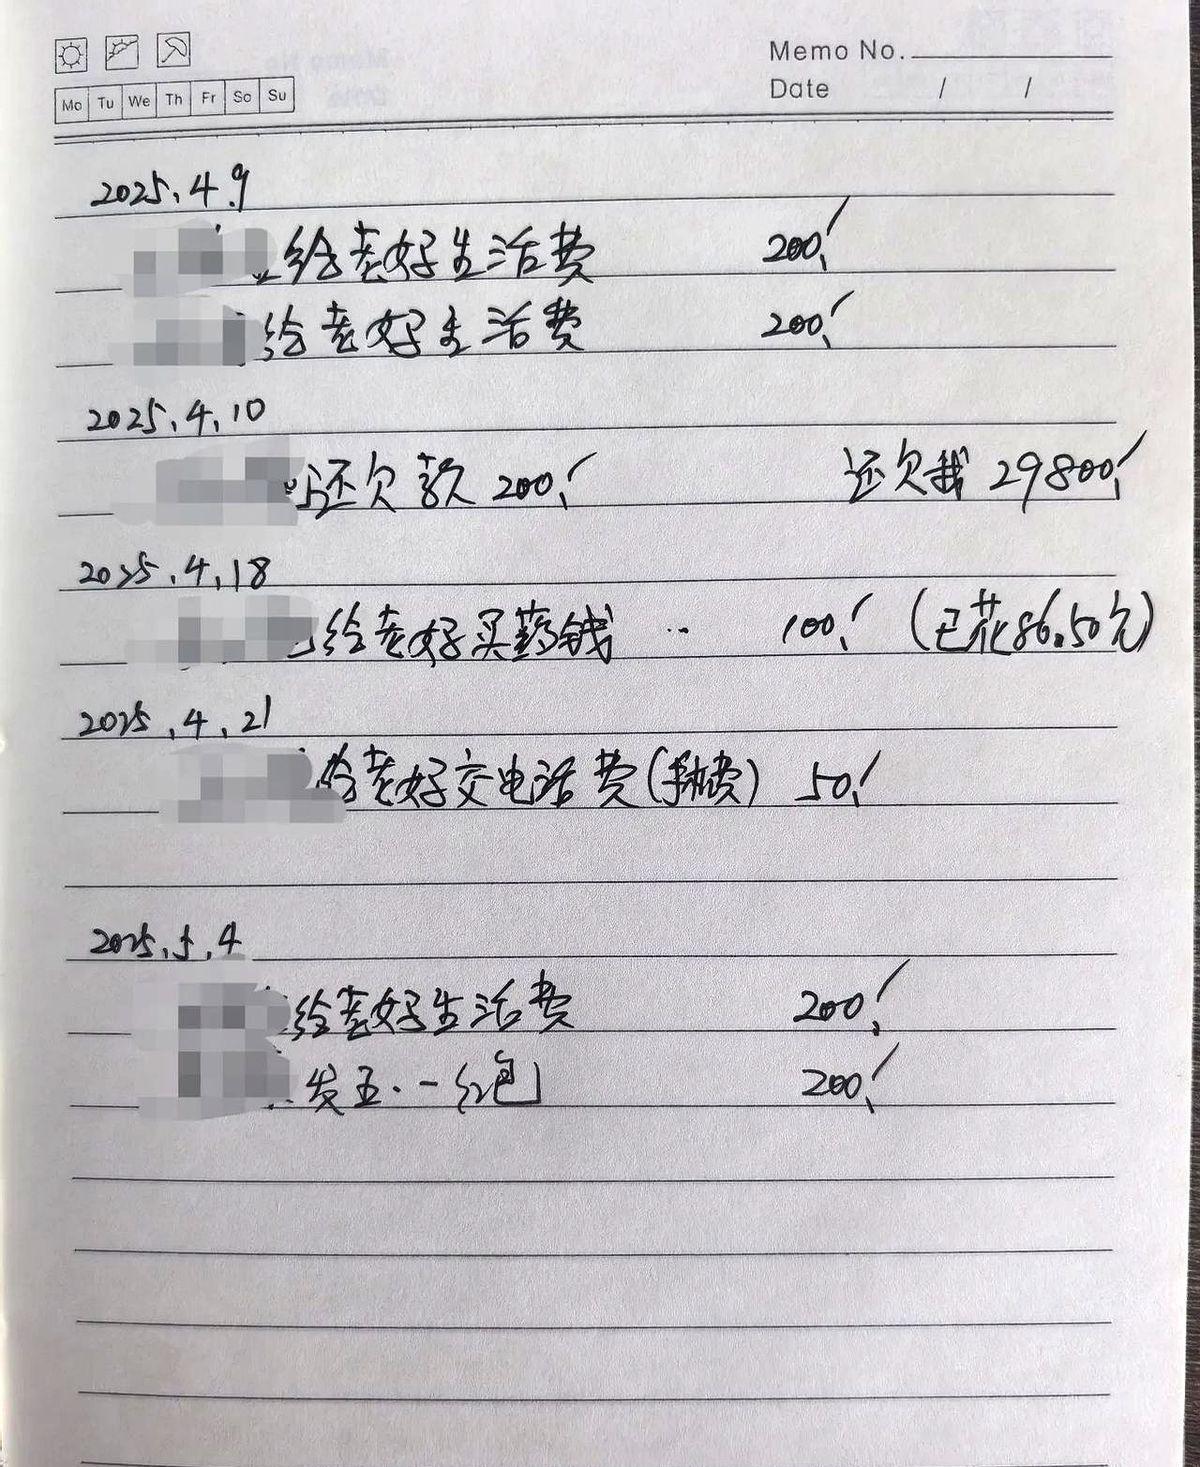 Memo No.
Mo Tu We Th Fr Sa Su
Date / /
2025.4.9
给老好生活费 200.
给老好生活费 200.
2025.4.10
还欠款 200. 还欠我 29800.
2025.4.18
给老好买药钱 100. (已花86.50元)
2025.4.21
给老好交电话费(手机费) 50.
2025.5.4
给老好生活费 200.
发五.一红包 200.